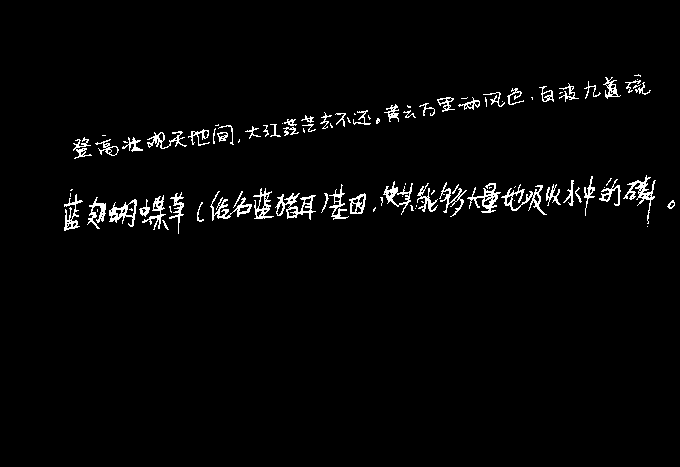 登高壮观天地间,大江茫茫去不还。黄云万里动风色,白波九道流
蓝翅蝴蝶草(俗名蓝猪耳)基因,使其能够大量地吸收水中的磷。